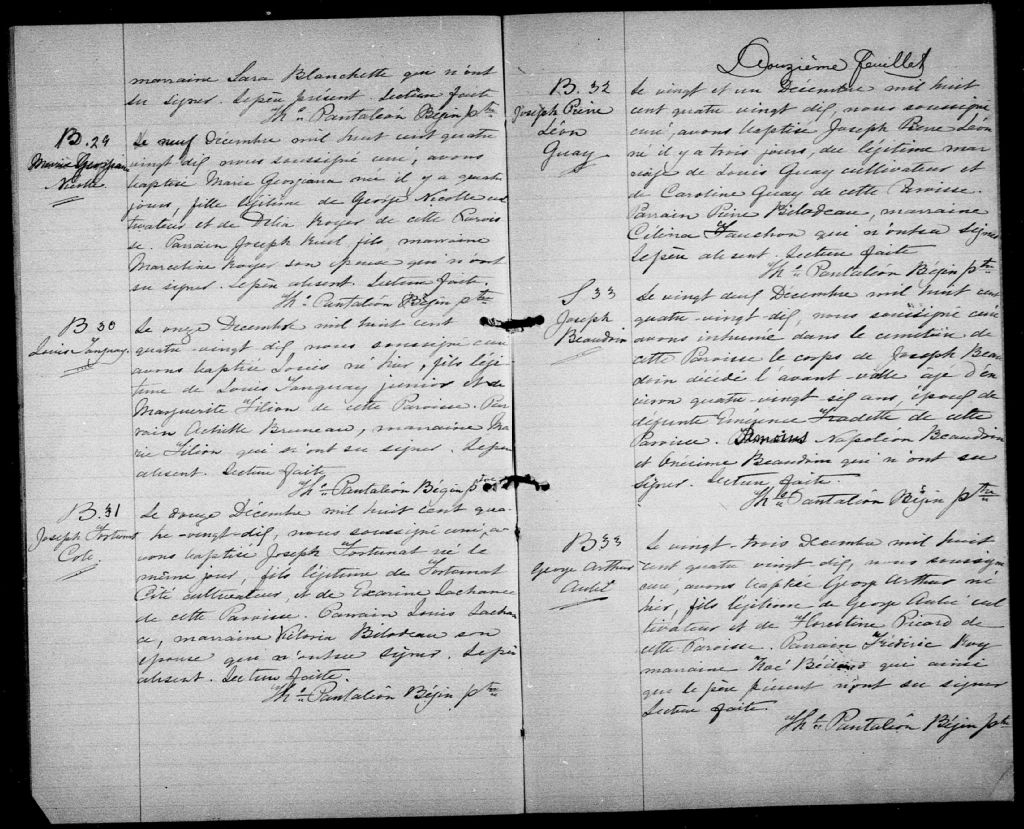 marraine Sara Blanchette qui n'ont
su signer. Le père présent. Lecture faite
Ths Pantaléon Bégin ptre
B. 29
Marie Georgiana
Nicole
Le neuf Décembre mil huit cent quatre
vingt dix nous soussigné curé, avons
baptisé Marie Georgiana née il y a quatre
jours, fille légitime de George Nicolle cul
tivateur et de Délia Royer de cette Parois
se. Parrain Joseph fils, marraine
Marceline Royer son épouse qui n'ont
su signer. Le père absent. Lecture faite.
Ths Pantaléon Bégin ptre
B 30
Louis Tanguay
Le onze Décembre mil huit cent
quatre-vingt-dix nous soussigné curé
avons baptisé Louis né hier, fils légi
time de Louis Tanguay junior et de
Marguerite Filion de cette Paroisse. Par
rain Achille Bruneau, marraine Ma
rie Filion qui n'ont su signer. Le père
absent. Lecture faite.
Ths Pantaléon Bégin ptre
B. 31
Joseph Fortunat
Coté
Le douze Décembre mil huit cent qua
tre-vingt-dix, nous soussigné curé, a
vons baptisé Joseph Fortunat né le
même jour, fils légitime de Fortunat
Côté cultivateur, et de Exarine Lachance
de cette Paroisse. Parrain Louis Lachan
ce, marraine Victoria Bilodeau son
épouse qui n'ont su signer. Le père
absent. Lecture faite.
Ths Pantaléon Bégin ptre
Douzième feuillet
B. 32
Joseph Pierre
Léon
Guay
Le vingt et un Décembre mil huit
cent quatre vingt dix, nous soussigné
curé, avons baptisé Joseph Pierre Léon
né il y a trois jours, du légitime mar
riage de Louis Guay cultivateur et
de Caroline Guay de cette Paroisse.
Parrain Pierre Bilodeau, marraine
Célina Fauchon qui n'ont su signer
Le père absent. Lecture faite
Ths Pantaléon Bégin ptre
S 33
Joseph
Beaudoin
Le vingt deux Décembre mil huit cent
quatre-vingt-dix, nous soussigné curé
avons inhumé dans le cimetière de
cette Paroisse le corps de Joseph Beau
doin décédé l'avant-veille agé d'en
viron quatre-vingt six ans, époux de
défunte Emérence Fradette de cette
Paroisse. Témoins Napoléon Beaudoin
et Onésime Beaudoin qui n'ont su
signer. Lecture faite.
Ths Pantaléon Bégin ptre
B 33
George Arthur
Aubé
Le vingt-trois Décembre mil huit
cent quatre vingt dix, nous soussigné
curé, avons baptisé George Arthur né
hier, fils légitime de George Aubé cul
tivateur et de Florestine Picard de
cette Paroisse. Parrain Frédéric Roy
marraine Noé Bédard qui ainsi
que le père présent n'ont su signer
Lecture faite.
Ths Pantaléon Bégin ptre